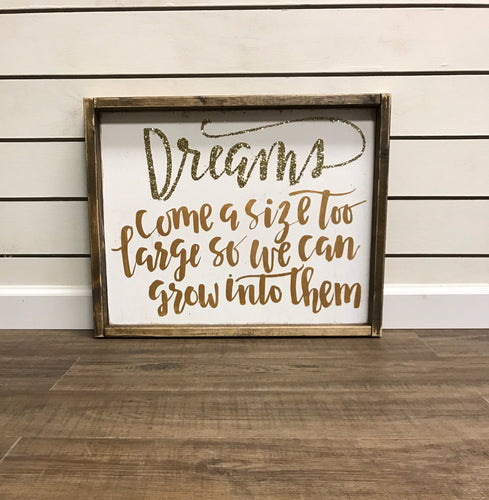 Dreams
come a size too
large so we can
grow into them